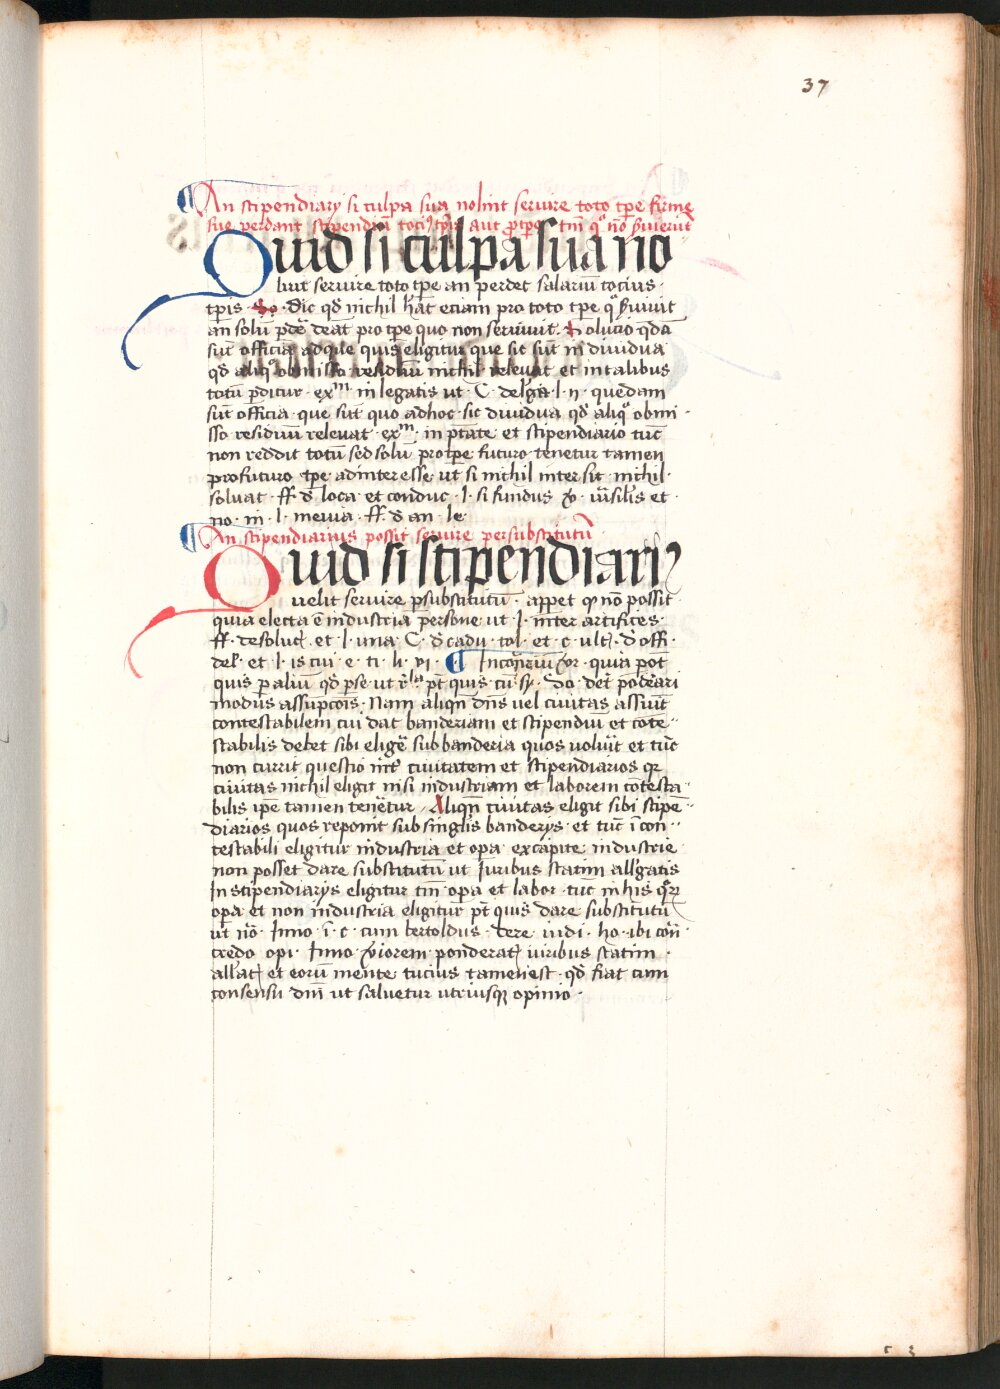 37
¶ An stipendiarÿ si culpa sua nolint seruire toto tp̄e firme
sue perdant stipendiū tociꝰ tp̄is aut ꝓ tp̄e tm̄ qͦ nō ẜuierūt
Quid si culpa sua no
luit seruire toto tp̄e an perdet salariū tocius ·
tp̄is · So · Dic qd̄ nichil hāt eciam pro toto tp̄e qͦ ẜuiuit
an solū ꝑdē deāt pro tp̄e quo non seruiuit · Solucio qdā
sūt officia ad que quis eligitur que sic sūt indiuidua
qd̄ aliqͦ obmisso residuū nichil releuat et in talibus
totū ꝑditur · exᵐ · in legatis ut · C · de lga · l · ij · quedam
sūt officia · que sūt quo ad hoc · sic diuidua qd̄ aliqͦ obmi ·
sso residuū releuat · exᵐ · in ptāte et stipendiario tūc
non reddit totū sed solū pro tp̄e futuro tenetur tamen
pro futuro tp̄e ad interesse ut si nichil intersit · nichil ·
soluat · ff · d̄ loca · et conduc · l · si fundus et ·
no · in · l · meuia · ff · d̄ an · le
¶ An stipendiarius possit seruire per substitutū
Quid si stipendiariꝰ
velit seruire ꝑ substitutū · appet qͩ nō possit
quia electa ē industria persone ut · l · inter artifices ·
ff · de soluc̄ · et · l · una · C · d̄ cadu · tol · et · c · ult̄ · d̄ offi ·
del · et · l · is cui · e · ti · li · vi · ¶ In cōtrariū · quia pōt
quis per aliū qd̄ ꝑ se ut · pt̄ quis · cū sy · Do · det ponderari
modus assūpcōis · Nam aliqn̄ dn̄s uel ciuitas assūit
contestabilem cui dat banderiam et stipendiū et cōte ··
stabilis debet sibi eligē sub banderia quos voluit et tūc
non currit questio int̄ ciuitatem et stipendiarios qr̄
ciuitas nichil eligit nisi industriam et laborem cōtesta ·
bilis ip̄e tamen tenetur · Aliqn̄ ciuitas eligit sibi stipē ··
diarios quos reponit sub singlis banderÿs · et tūc ī con ··
testabili eligitur industria et opa · ex capite industrie
non posset dare substitutū ut Juribus statim allgatis
In stipendiarÿs eligitur tm̄ opa et labor · tūc in his qr̄
opa et non industria eligitur pt̄ quis dare substitutū
ut nō · Inno · ī · c · cum bertoldus · de re iudi · ho · ibi cōn̄
credo opi · Inno · ponderat viribus statim ·
allat et eorū mente tucius tamen est · qd̄ fiat cum
consensu dn̄i ut saluetur utriusqꝫ opinio ·